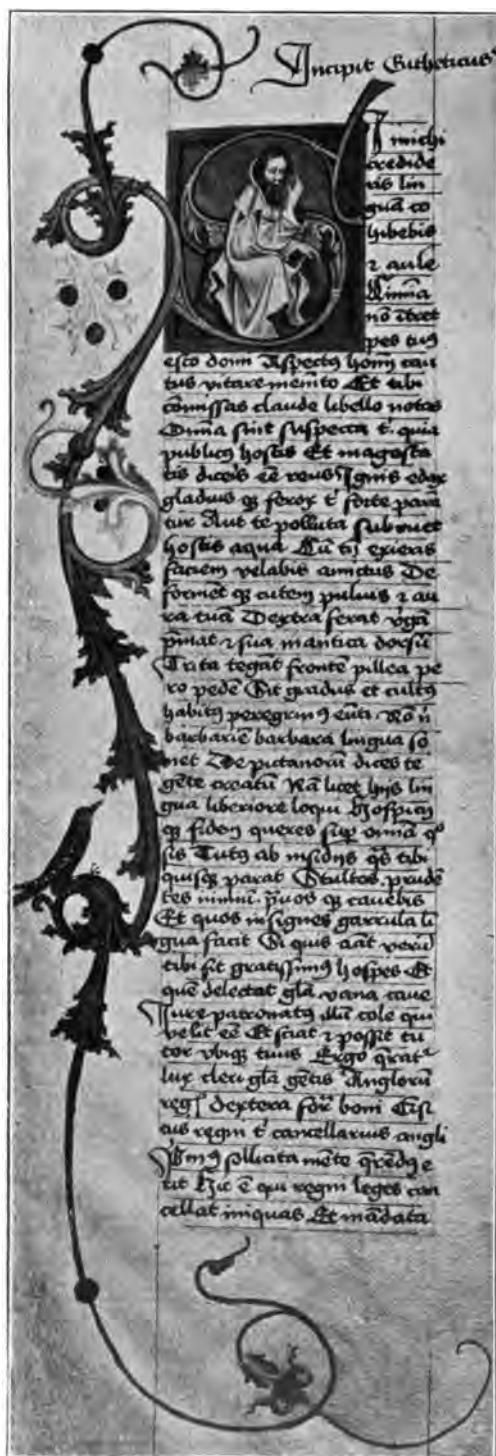 Incipit Eutheticus
Si michi
credide
ris lin
guā co
hibebis
⁊ aule
Limīa
nō ītret
pes tuꝰ
esto domi Aspectꝰ homīū cau
tus vitare memēto Et tibi
cōmissas claude libello notas
Omīa sint suspecta t̄ quia
publicꝰ hostis Et magesta
tis diceris eē reus Ignis edax
gladius qꝫ ferox t̄ forte parā
tur Aut te polluta subruet
hostis aqua Cū tū exieras
faciem velabis amictus De
formet qꝫ cutem puluis ⁊ au
ra tuā Dextra ferat v̓gā
p̄mat ⁊ sua mantica dorsū
Trita tegat frontē pillea pe
ro pedē Sit gradus et cultꝰ
habitꝰ peregrinꝰ eūti. Nō n̄
barbariē barbara lingua so
net De pictanorū dices te
gēte creatū Nā licet hijs lin
gua liberiore loqui Hospicij
qꝫ fidem queres sup̄ omīa qͦ
sis Tutꝰ ab insidijs q̄s tibi
quisqꝫ parat Stultos prudē
tes nimiū. p̄uos qꝫ cauebis
Et quos insignes garrula lī
gua facit Si quis amt verū
tibi sit gratissimꝰ hospes Et
quē delectat gl̄a vana caue
Iure patronatꝰ illū cole qui
velit eē Et sciat ⁊ possit tu
tor vbiqꝫ tuus Ergo q̄rat᷑
lux cleri gl̄a gētis Anglorū
regꝭ dextera for̄ boni Cisi
tus regni t̄ cancellarius angli
Pimꝰ sollicita mēte q̄rēdꝰ e
rit Hic ē qui regni leges can
cellat iniquas Et mādata